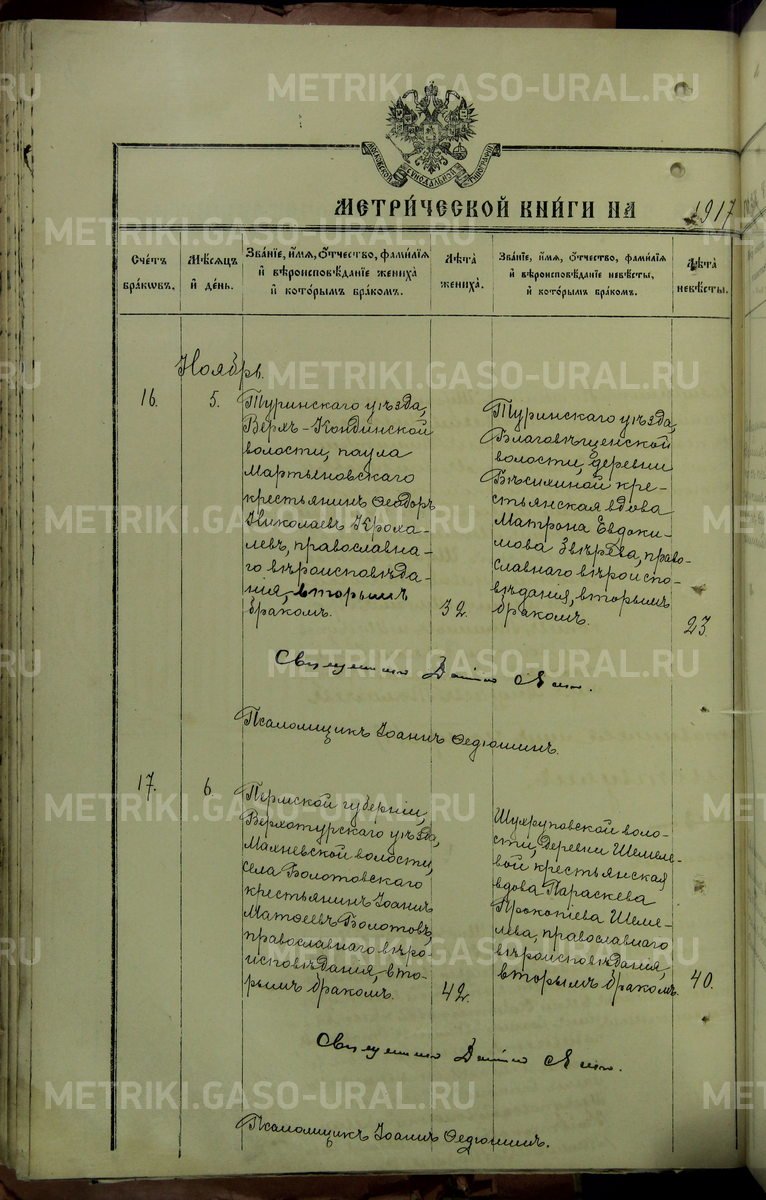 METRIKI.GASO-URAL.RU
МОСКОВСКОЙ СѴНОДАЛЬНОЙ ТИПОГРАФІИ
МЕТРИ́ЧЕСКОЙ КНИ́ГИ НА 1917
Сче́тъ бра́ковъ.
Мѣ́сяцъ и́ де́нь.
Зва́нїе, и́мя, ѻ́тчество, фами́лїя и́ вѣроисповѣ́данїе жениха̀ и́ кото́рымъ бра́комъ.
Лѣ́та жениха̀.
Зва́нїе, и́мя, ѻ́тчество, фами́лїя и́ вѣроисповѣ́данїе невѣ́сты, и́ кото́рымъ бра́комъ.
Лѣ́та невѣ́сты.
Ноябрь.
16.
5.
Туринскаго уѣзда,
Верхъ-Кондинской
волости, паула
Мартыновскаго
крестьянинъ Ѳеодоръ
Николаевъ Кроха-
левъ, православна-
го вѣроисповѣда-
нія, вторымъ
бракомъ.
32.
Туринскаго уѣзда,
Благовѣщенской
волости, деревни
кре-
стьянская вдова
Матрона Евдоки-
мова право-
славнаго вѣроиспо-
вѣданія, вторымъ
бракомъ.
23.
Священникъ
Псаломщикъ Іоаннъ Ѳедюшинъ.
17.
6.
Пермской губерніи,
Верхотурскаго уѣзда,
Махневской волости,
села Болотовскаго
крестьянинъ Іоаннъ
Матѳеевъ Болотовъ,
православнаго вѣро-
исповѣданія, вто-
рымъ бракомъ.
42.
Шухруповской воло-
сти, деревни Шемеле-
вой крестьянская
вдова Параскева
Прокопіева Шеме-
лева, православнаго
вѣроисповѣданія,
вторымъ бракомъ.
40.
Священникъ
Псаломщикъ Іоаннъ Ѳедюшинъ.